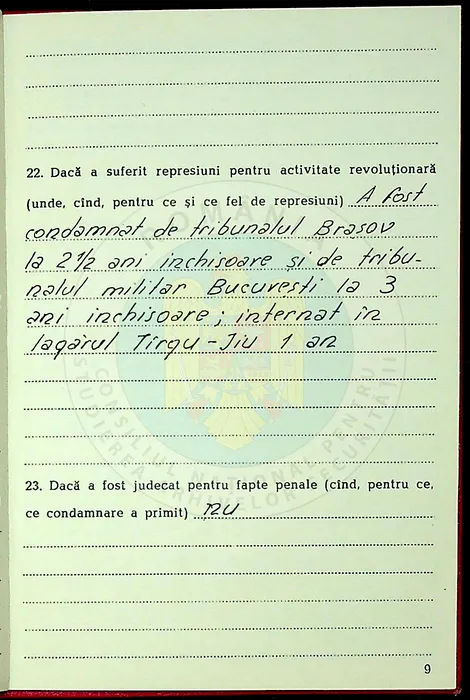 22. Dacă a suferit represiuni pentru activitate revoluționară
(unde, cînd, pentru ce și ce fel de represiuni) A fost
condamnat de tribunalul Brașov
la 2 1/2 ani inchisoare și de tribu-
nalul militar București la 3
ani inchisoare; internat în
lagărul Tirgu-Jiu 1 an
23. Dacă a fost judecat pentru fapte penale (cînd, pentru ce,
ce condamnare a primit) nu
9
ROMÂNIA
CONSILIUL NAȚIONAL PENTRU
STUDIEREA ARHIVELOR SECURITĂȚII